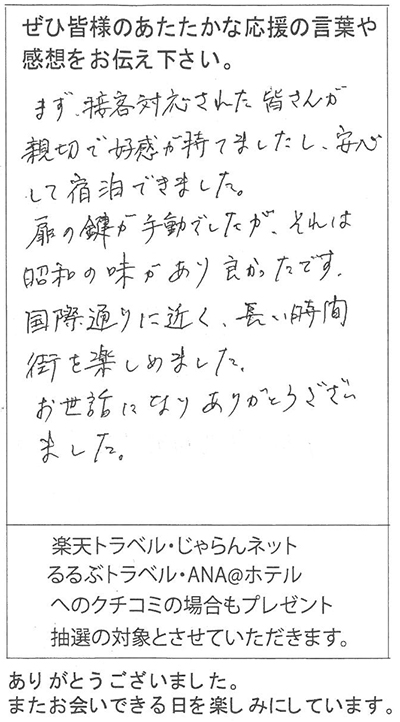 ぜひ皆様のあたたかな応援の言葉や
感想をお伝え下さい。
まず、接客対応された皆さんが
親切で好感が持てましたし、安心
して宿泊できました。
扉の鍵が手動でしたが、それは
昭和の味があり良かったです。
国際通りに近く、長い時間
街を楽しめました。
お世話になりありがとうござい
ました。
楽天トラベル・じゃらんネット
るるぶトラベル・ANA@ホテル
へのクチコミの場合もプレゼント
抽選の対象とさせていただきます。
ありがとうございました。
またお会いできる日を楽しみにしています。